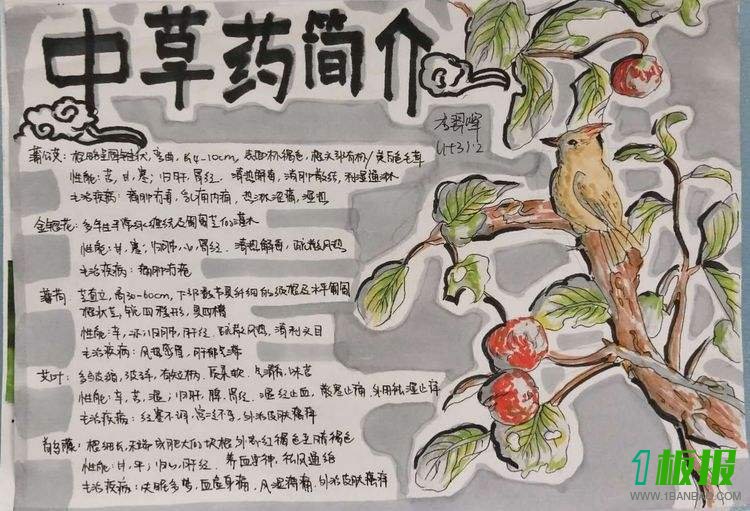 中草药简介
蒲公英：根略呈圆锥状，弯曲，长4-10cm，表面棕褐色，根头部有棕/黄色茸毛
性能：苦，甘，寒；归肝，胃经．清热解毒，消肿散结，利湿通淋
主治疾病：痈肿疔毒，乳痈内痈，热淋涩痛，湿热
金银花：多年生半常绿缠绕及匍匐茎的灌木
性能：甘，寒；归肺，心，胃经．清热解毒，疏散风热
主治疾病：痈肿疔疮
薄荷：茎直立，高30-60cm，下部数节具纤细的须根及水平匍匐
根状茎，锐四棱形，具四槽
性能：辛，凉；归肺，肝经．疏散风热，清利头目
主治疾病：风热感冒，肝郁气滞
艾叶：
性能：辛，苦，温；归肝，脾，肾经．温经止血，散寒止痛，外用祛湿止痒
主治疾病：经寒不调，宫冷不孕，外治皮肤瘙痒
首乌藤：根细长，末端成肥大的块根，外表红褐色至暗褐色
性能：甘，平；归心，肝经．养血安神，祛风通络
主治疾病：失眠多梦，血虚身痛，风湿痹痛，外治皮肤瘙痒
1板报
WWW.1BANBAO.COM